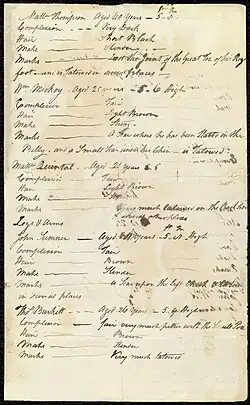 Matt Thompson — Aged 40 Years — 5 . 8
Complexion — Very Dark
Hair — Short Black
Make — Slender
Marks — Lost the Joint of the Great Toe of his Right
foot — and is tatowed in several places —
Wm Mickoy — Aged 25 Years — 5 . 6 High
Complexion — Fair
Hair — Light Brown
Make —
Marks — A Scar where he has been Stabbed in the
Belly — and a Small Scar under his Chin — is tatowed
Mattw Quintal — Aged 21 Years 5 . 5
Complexion — Fair
Hair — Light Brown
Make —
Marks — Very much tatowed on the
& several other places
Legs & Arms
John Sumner — Aged Years — 5 . 8 High
Complexion — Fair
Hair — Brown
Make — Slender
Marks — A Scar upon the left Cheek
in several places
Thos Burkitt — Aged 26 Years — 5 . 9 High
Complexion — fair very much pitted with the Small Pox
Hair — Brown
Make — Slender
Marks — Very much tatowed